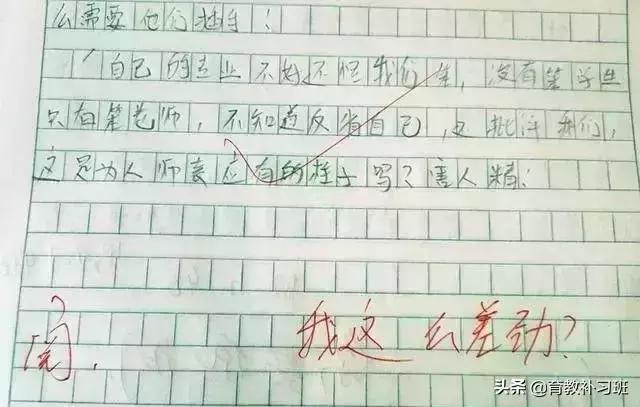 么需要他们插手!
自己的专业不好还怪我们笨,没有笨学生
只有笨老师,不知道反省自己,还批评我们,
这是为人师表应有的样子吗?害人精!
阅. 我这么差劲?
头条 @育教补习班